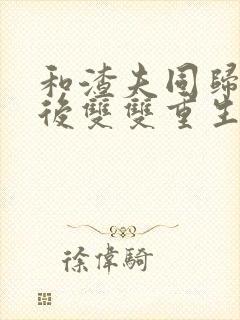 和渣夫同歸
後雙雙重生
徐偉騎